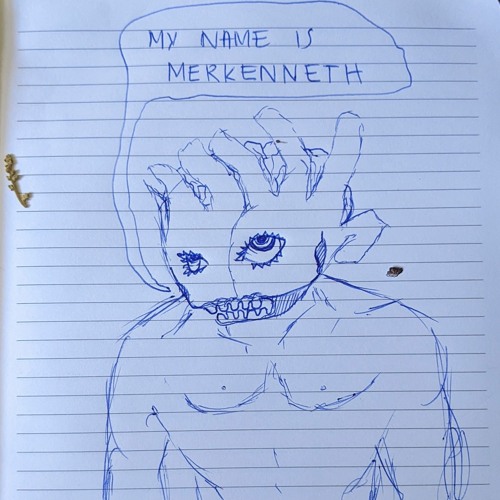 MY NAME IS
MERKENNETH